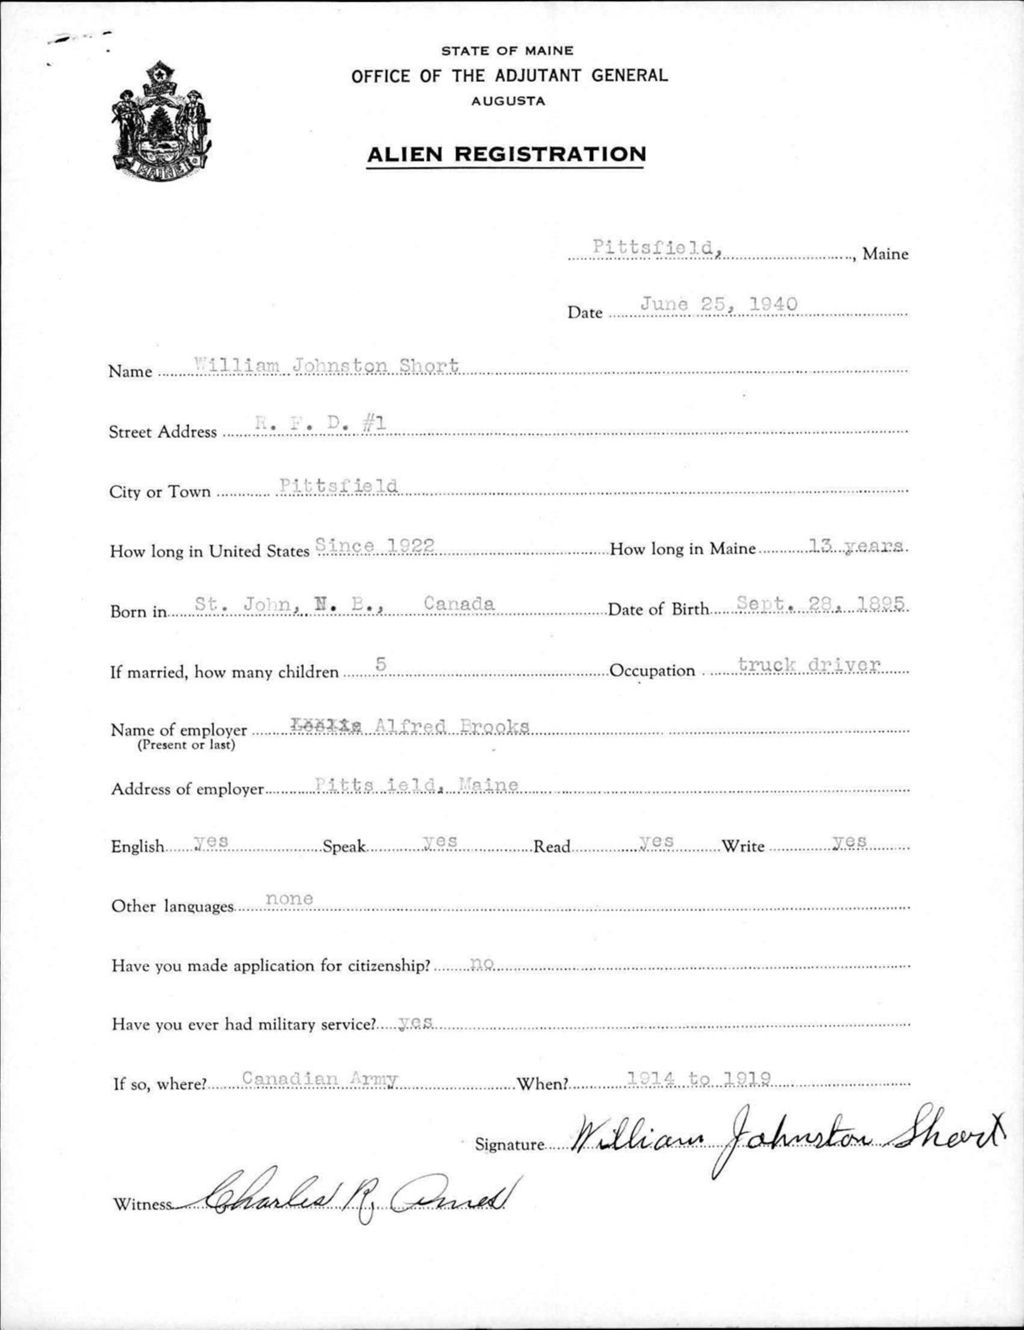 STATE OF MAINE
OFFICE OF THE ADJUTANT GENERAL
AUGUSTA
ALIEN REGISTRATION
MAINE
Pittsfield, , Maine
Date June 25, 1940
Name William Johnston Short
Street Address R. F. D. #1
City or Town Pittsfield
How long in United States Since 1922 How long in Maine 13 years
Born in St. John, N. B., Canada Date of Birth Sept. 28, 1895
If married, how many children 5 Occupation truck driver
Name of employer Alfred Brooks
(Present or last)
Address of employer Pitts ield, Maine
English yes Speak yes Read yes Write yes
Other languages none
Have you made application for citizenship? no
Have you ever had military service? yes
If so, where? Canadian Army When? 1914 to 1919
Signature William Johnston Short
Witness Charles R. Ames